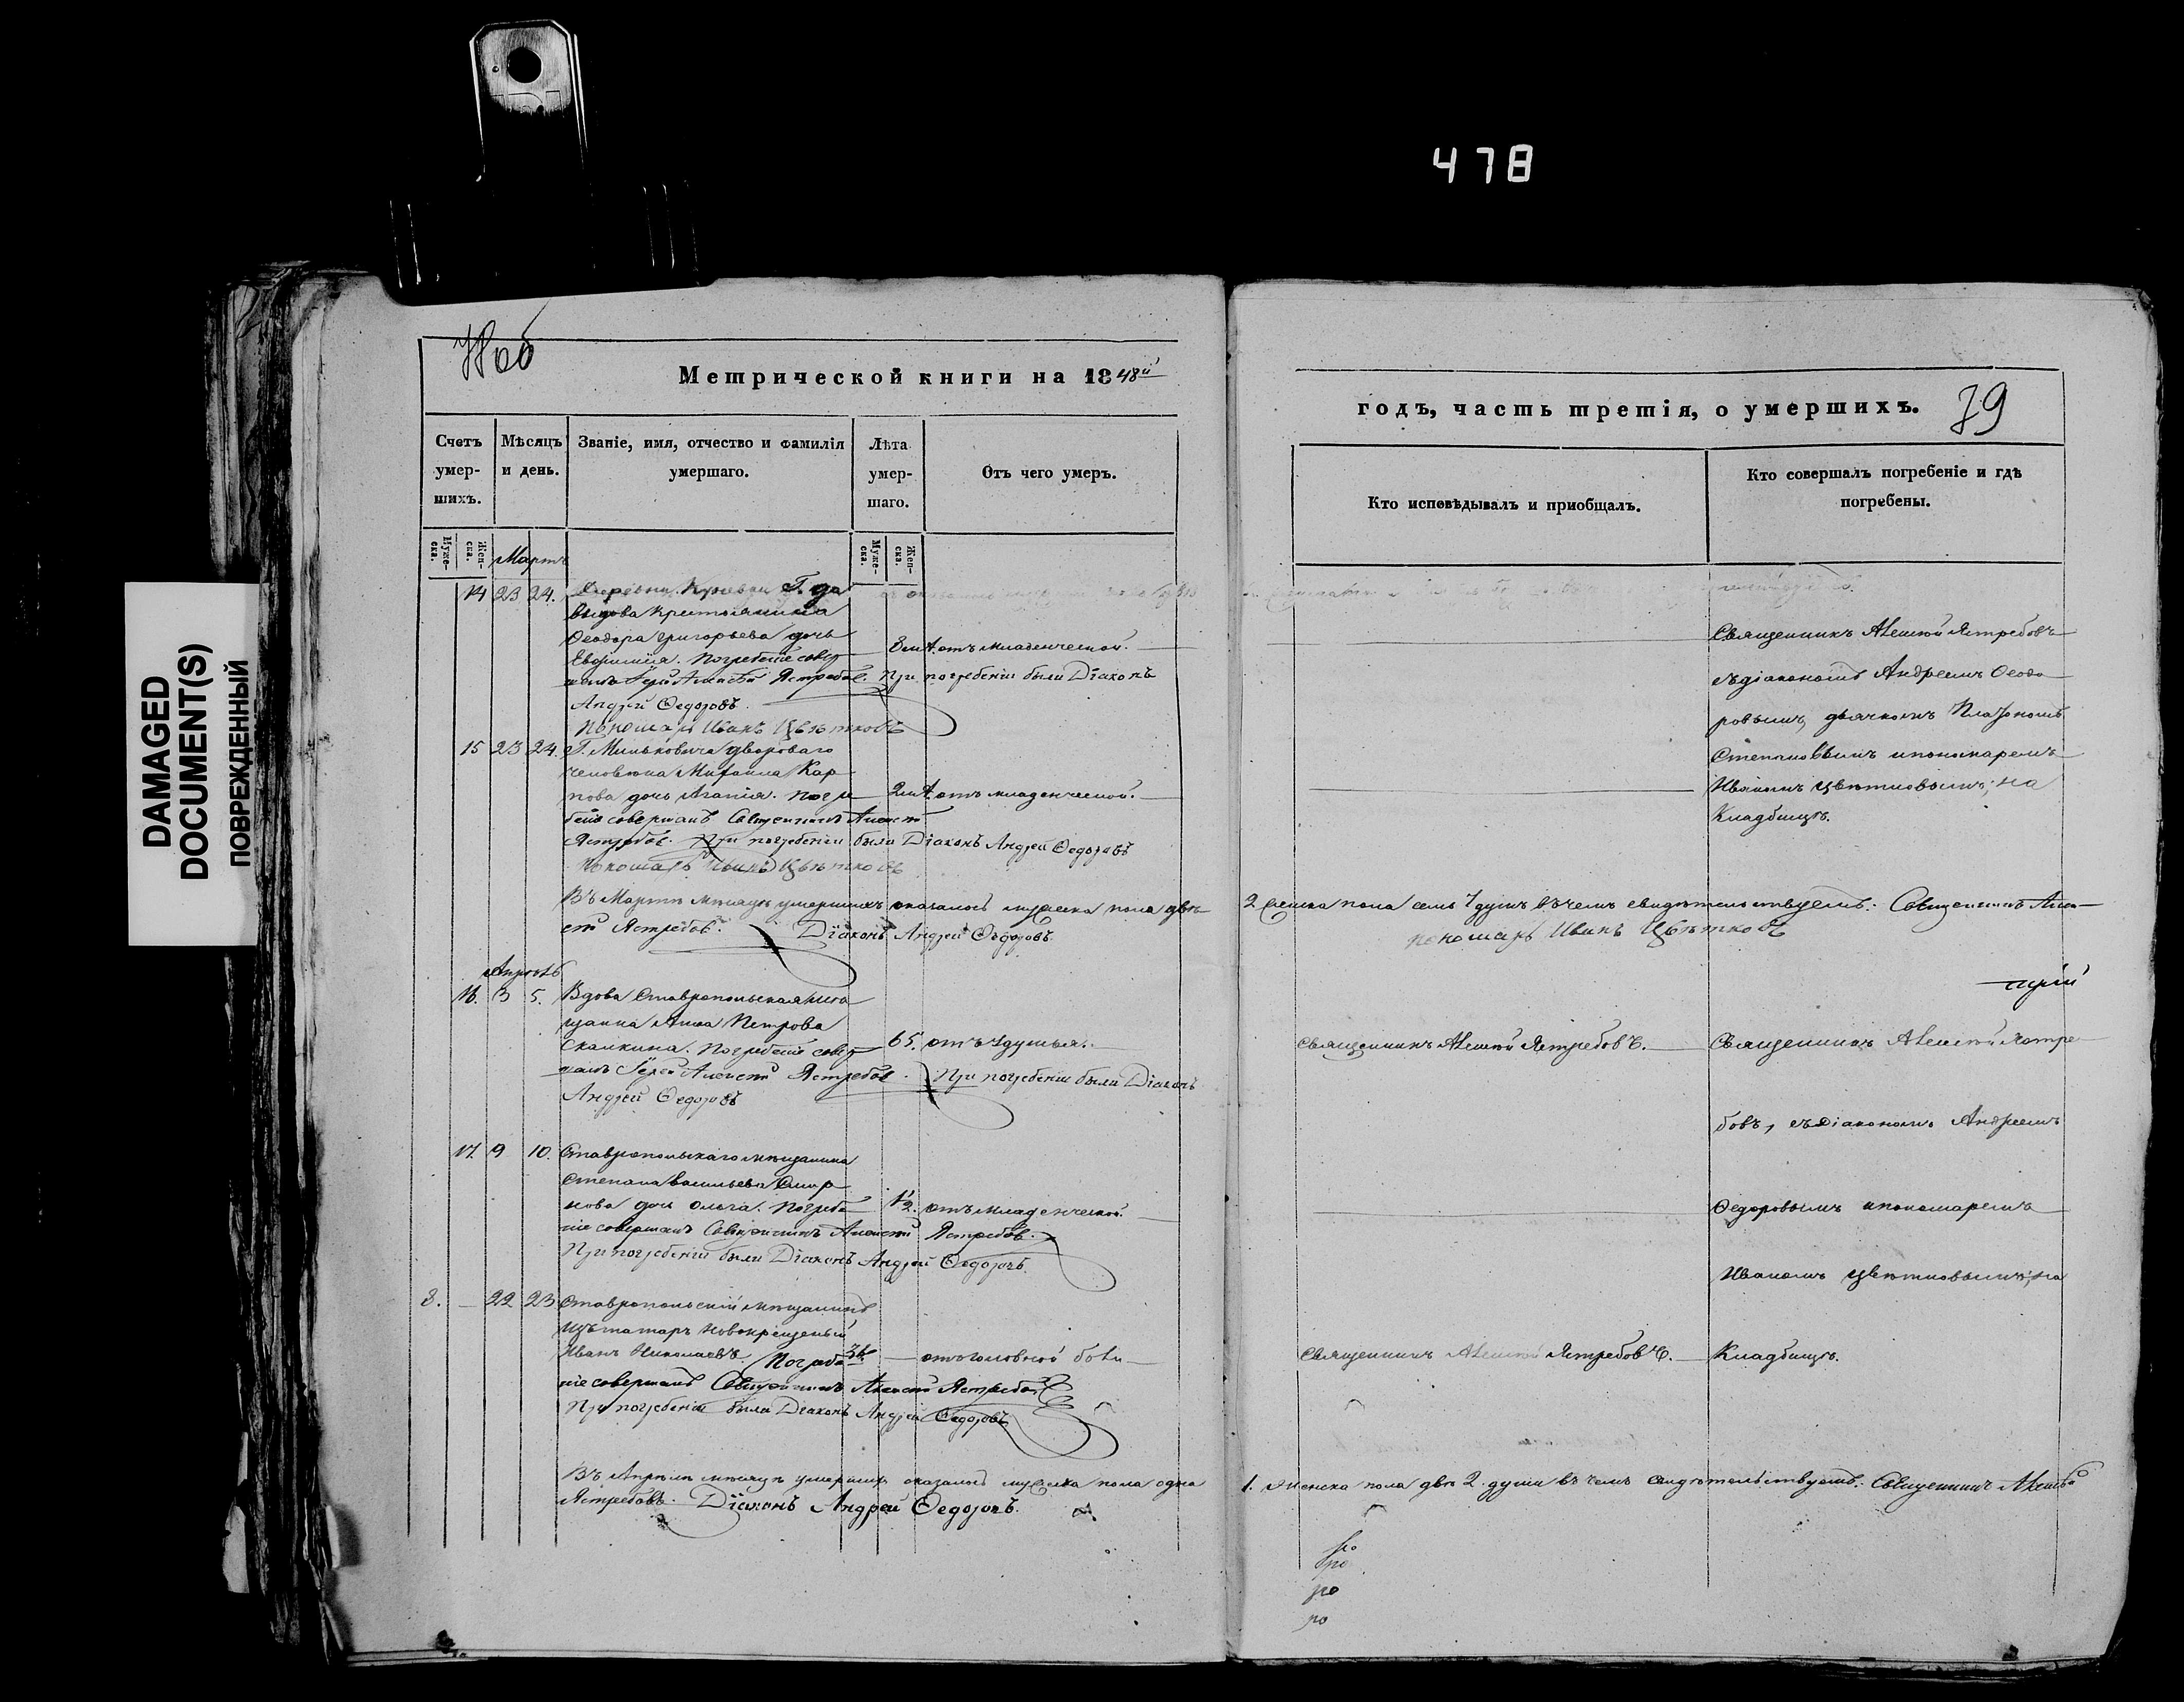 478
DAMAGED
DOCUMENT(S)
ПОВРЕЖДЕННЫЙ
Метрической книги на 1848й
Счетъ умер-шихъ.
Мѣсяцъ и день.
Званіе, имя, отчество и фамилія умершаго.
Лѣта умер-шаго.
Отъ чего умеръ.
Муже-ска.
Жен-ска.
Муже-ска.
Жен-ска.
Мартъ
14 23 24. Деревни Г. Да
выдова крестьянина
Ѳеодора Григорьева дочь
Евфимія. Погребеніе совер 3 отъ младенческой.
шалъ Іерей Алексѣй Ястребовъ. При погребеніи были Діаконъ
Андрей Ѳедоровъ.
Пономарь Иванъ Цвѣтковъ
15 23 24. Г. Мильковича двороваго
человѣка Михаила Кар
пова дочь Агапія. Погре 2 отъ младенческой.
беніе совершалъ Священникъ Алексѣй
Ястребовъ. При погребеніи были Діаконъ Андрей Ѳедоровъ
Пономарь Иванъ Цвѣтковъ
Въ Мартѣ мѣсяцѣ умершихъ оказалось мужеска пола двѣ
ѣй Ястребовъ. Діаконъ Андрей Ѳедоровъ.
Апрѣль
16. 3 5. Вдова Ставропольская мѣ
щанка Анна Петрова
Скалкина. Погребеніе совер 65. отъ удушья.
шалъ Іерей Алексѣй Ястребовъ. При погребеніи были Діаконъ
Андрей Ѳедоровъ
17. 9 10. Ставропольскаго мѣщанина
Степана Васильева Смир
нова дочь Ольга. Погребе 1/2. отъ младенческой.
ніе совершалъ Священникъ Алексѣй Ястребовъ.
При погребеніи были Діаконъ Андрей Ѳедоровъ.
3. 22 23 Ставропольскій мѣщанинъ
изъ татаръ новокрещеный
Иванъ Николаевъ. Погребе отъ головной боли
ніе совершалъ Священникъ Алексѣй Ястребовъ
При погребеніи были Діаконъ Андрей Ѳедоровъ
Въ Апрѣлѣ мѣсяцѣ умершихъ оказалось мужеска пола одна
Ястребовъ. Діаконъ Андрей Ѳедоровъ.
годъ, часть третія, о умершихъ. 79
Кто исповѣдывалъ и приобщалъ.
Кто совершалъ погребеніе и гдѣ погребены.
Священникъ Алексѣй Ястребовъ
съ діакономъ Андреемъ Ѳеодо
ровымъ, дьячкомъ Платономъ
Степановымъ и пономаремъ
Иваномъ Цвѣтковымъ; на
Кладбищѣ.
2 женска пола семь 7 душъ въ чемъ свидѣтельствуемъ: Священникъ Алек
пономарь Иванъ Цвѣтковъ
Священникъ Алексѣй Ястребовъ. Священникъ Алексѣй Ястре
бовъ, съ діакономъ Андреемъ
Ѳедоровымъ и пономаремъ
Иваномъ Цвѣтковымъ; на
Священникъ Алексѣй Ястребовъ. Кладбищѣ.
1. женска пола двѣ 2. души въ чемъ свидѣтельствуемъ: Священникъ Алексѣй
ро
ро
ро